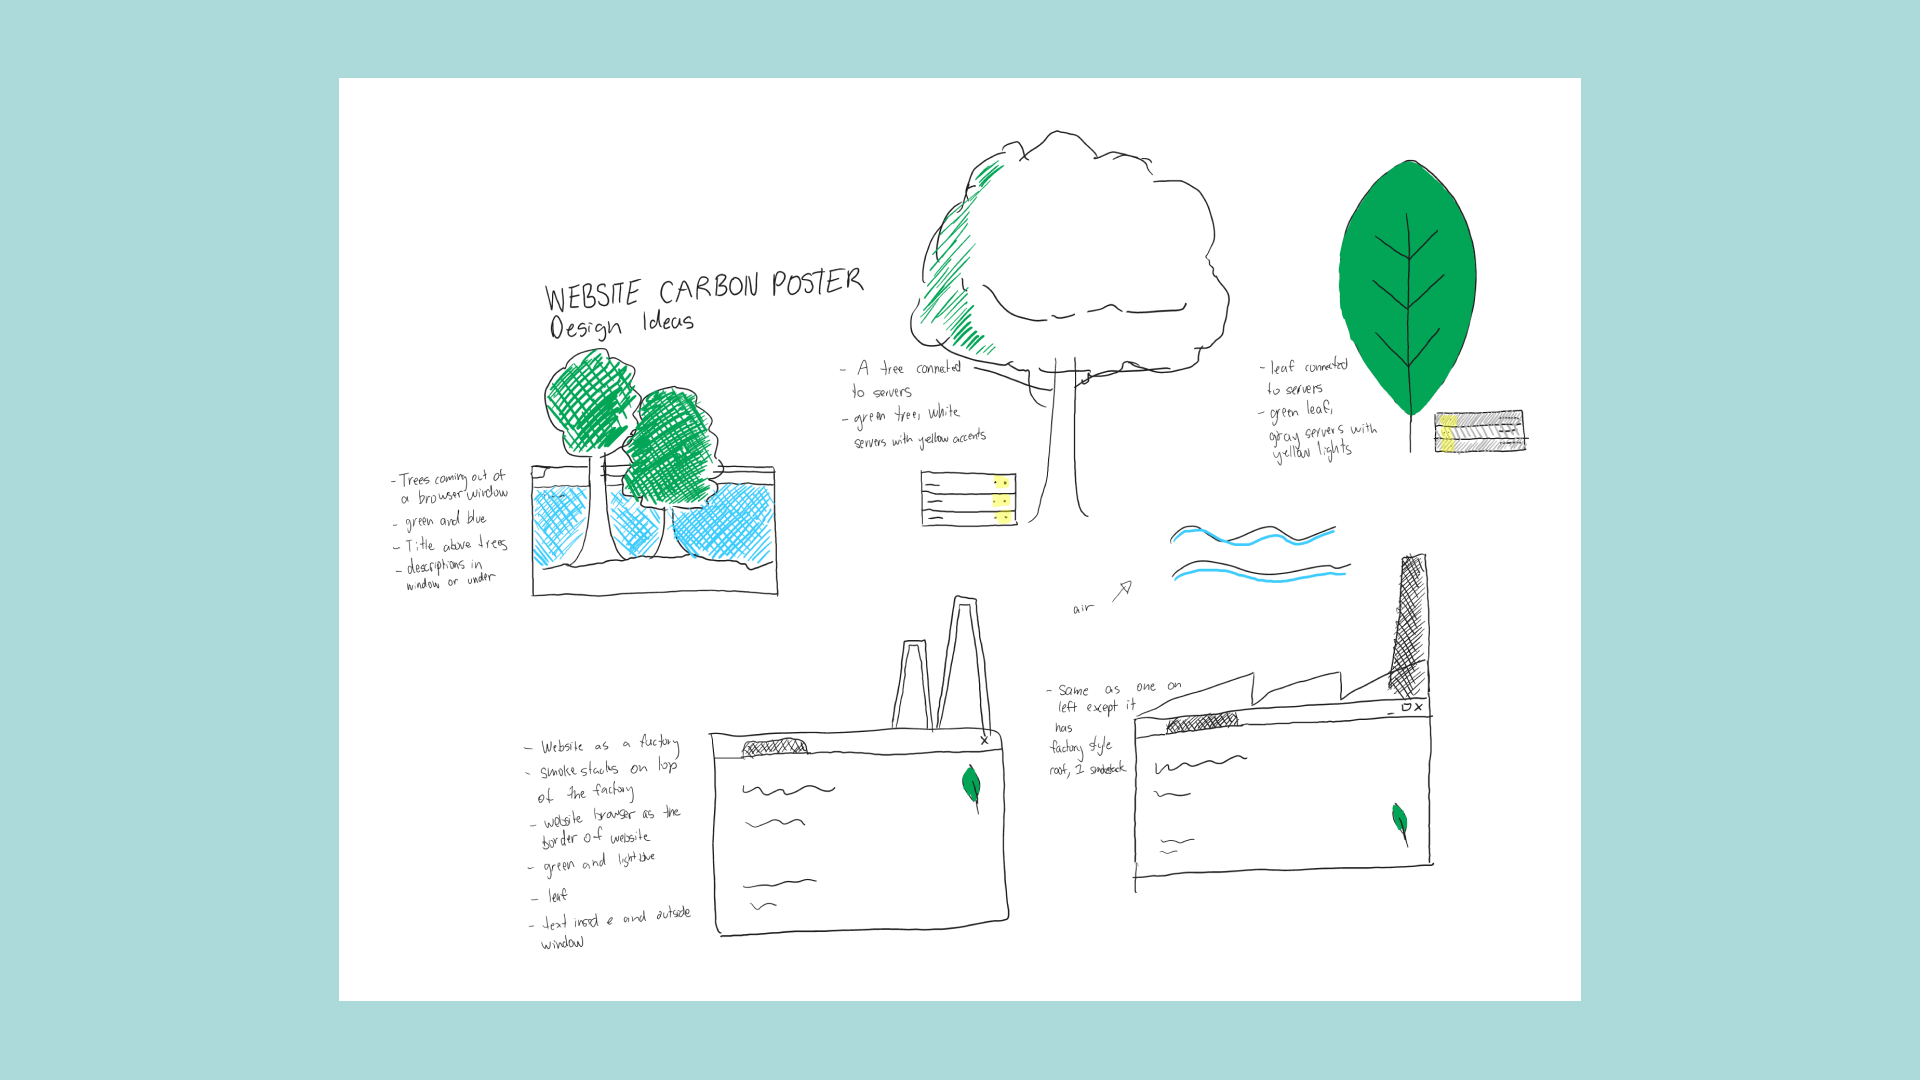 WEBSITE CARBON POSTER
Design Ideas
- Trees coming out of
a browser window
- green and blue
- Title above trees
- descriptions in
window or under
- A tree connected
to servers
- green tree, white
servers with yellow accents
- leaf connected
to servers
- green leaf,
gray servers with
yellow lights
- Website as a factory
- smoke stacks on top
of the factory
- website browser as the
border of website
- green and light blue
- leaf
- text inside and outside
window
X
air
- Same as one on
left except it
has
factory style
roof, 1 smokestack
X